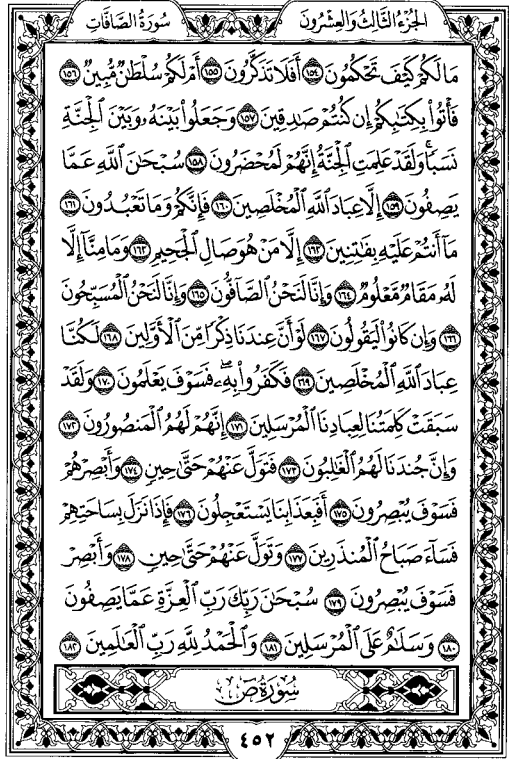 سُورَةُ الصَّافَّاتِ
الجُزْءُ الثَّالِثُ وَالعِشْرُونَ
مَا لَكُمْ كَيْفَ تَحْكُمُونَ ١٥٤ أَفَلَا تَذَكَّرُونَ ١٥٥ أَمْ لَكُمْ سُلْطَٰنٌ مُّبِينٌ ١٥٦
فَأْتُوا۟ بِكِتَٰبِكُمْ إِن كُنتُمْ صَٰدِقِينَ ١٥٧ وَجَعَلُوا۟ بَيْنَهُۥ وَبَيْنَ ٱلْجِنَّةِ
نَسَبًا ۚ وَلَقَدْ عَلِمَتِ ٱلْجِنَّةُ إِنَّهُمْ لَمُحْضَرُونَ ١٥٨ سُبْحَٰنَ ٱللَّهِ عَمَّا
يَصِفُونَ ١٥٩ إِلَّا عِبَادَ ٱللَّهِ ٱلْمُخْلَصِينَ ١٦٠ فَإِنَّكُمْ وَمَا تَعْبُدُونَ ١٦١
مَآ أَنتُمْ عَلَيْهِ بِفَٰتِنِينَ ١٦٢ إِلَّا مَنْ هُوَ صَالِ ٱلْجَحِيمِ ١٦٣ وَمَا مِنَّآ إِلَّا
لَهُۥ مَقَامٌ مَّعْلُومٌ ١٦٤ وَإِنَّا لَنَحْنُ ٱلصَّآفُّونَ ١٦٥ وَإِنَّا لَنَحْنُ ٱلْمُسَبِّحُونَ
١٦٦ وَإِن كَانُوا۟ لَيَقُولُونَ ١٦٧ لَوْ أَنَّ عِندَنَا ذِكْرًا مِّنَ ٱلْأَوَّلِينَ ١٦٨ لَكُنَّا
عِبَادَ ٱللَّهِ ٱلْمُخْلَصِينَ ١٦٩ فَكَفَرُوا۟ بِهِۦ ۖ فَسَوْفَ يَعْلَمُونَ ١٧٠ وَلَقَدْ
سَبَقَتْ كَلِمَتُنَا لِعِبَادِنَا ٱلْمُرْسَلِينَ ١٧١ إِنَّهُمْ لَهُمُ ٱلْمَنصُورُونَ ١٧٢
وَإِنَّ جُندَنَا لَهُمُ ٱلْغَٰلِبُونَ ١٧٣ فَتَوَلَّ عَنْهُمْ حَتَّىٰ حِينٍ ١٧٤ وَأَبْصِرْهُمْ
فَسَوْفَ يُبْصِرُونَ ١٧٥ أَفَبِعَذَابِنَا يَسْتَعْجِلُونَ ١٧٦ فَإِذَا نَزَلَ بِسَاحَتِهِمْ
فَسَآءَ صَبَاحُ ٱلْمُنذَرِينَ ١٧٧ وَتَوَلَّ عَنْهُمْ حَتَّىٰ حِينٍ ١٧٨ وَأَبْصِرْ
فَسَوْفَ يُبْصِرُونَ ١٧٩ سُبْحَٰنَ رَبِّكَ رَبِّ ٱلْعِزَّةِ عَمَّا يَصِفُونَ
١٨٠ وَسَلَٰمٌ عَلَى ٱلْمُرْسَلِينَ ١٨١ وَٱلْحَمْدُ لِلَّهِ رَبِّ ٱلْعَٰلَمِينَ ١٨٢
سُورَةُ صٓ
٤٥٢